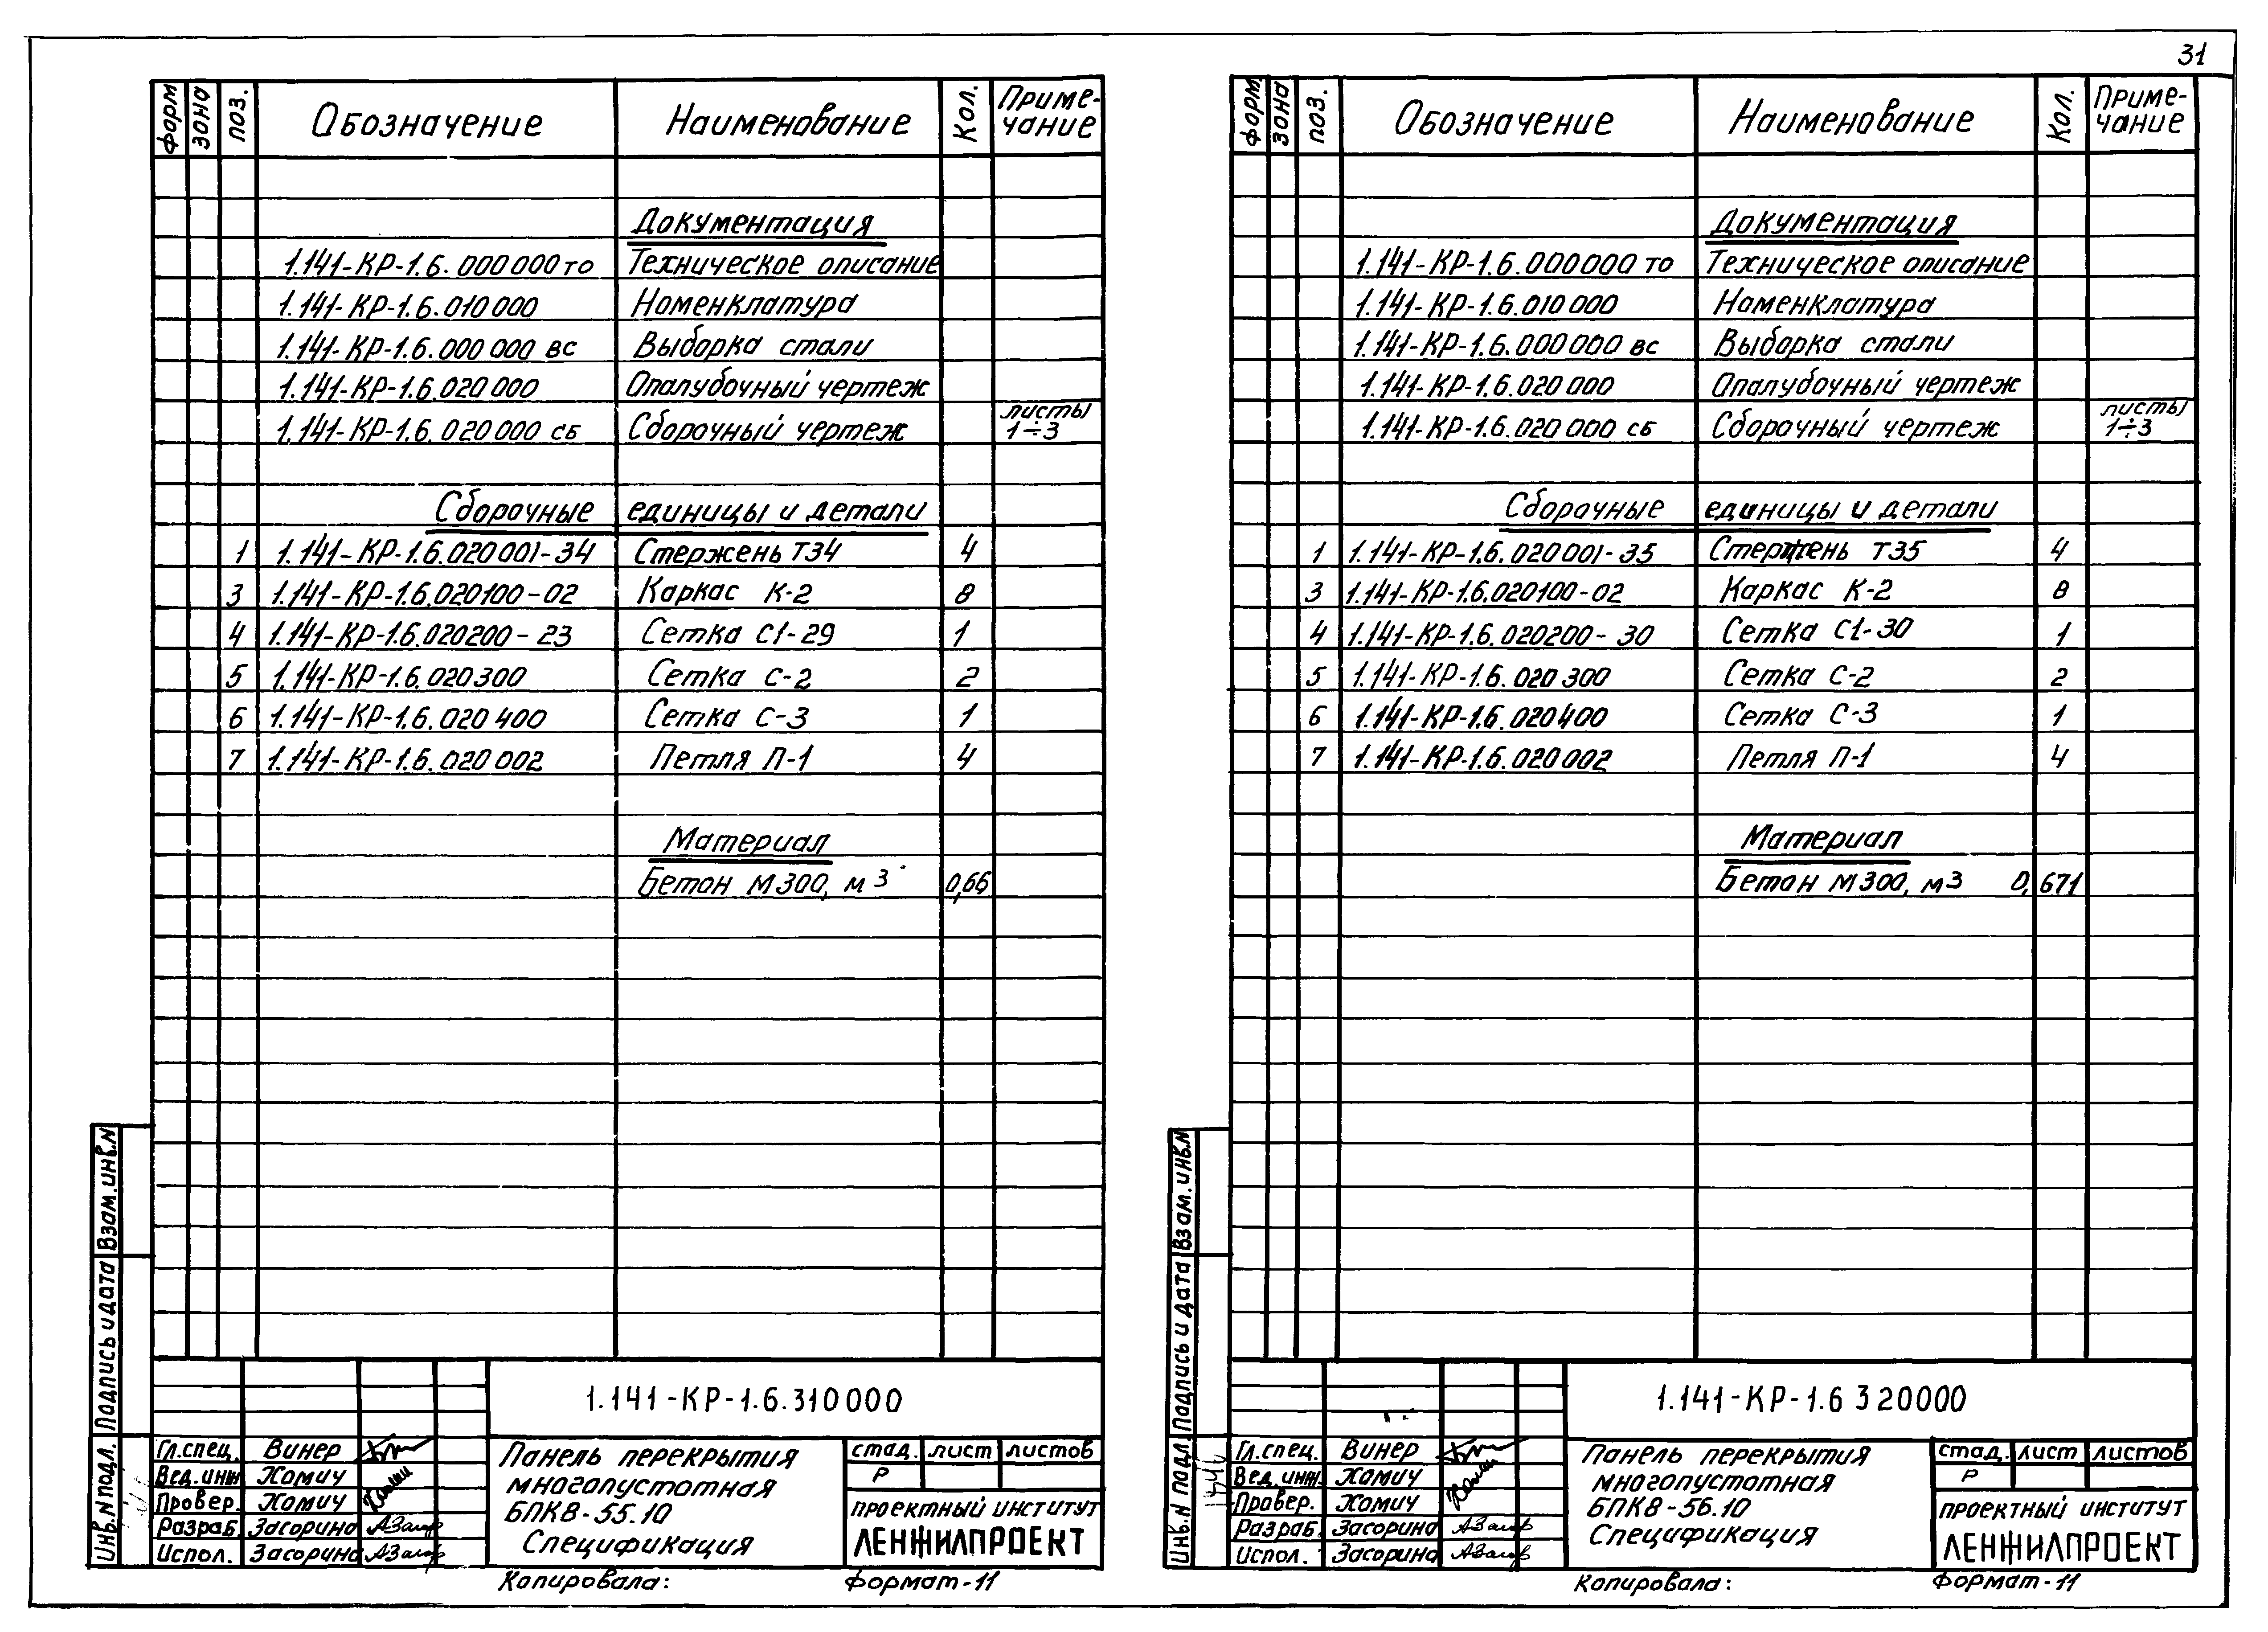 31
форм
зона
поз.
Обозначение
Наименование
Кол.
Приме-
чание
Документация
1.141-КР-1.6.000000 то Техническое описание
1.141-КР-1.6.010000 Номенклатура
1.141-КР-1.6.000000 вс Выборка стали
1.141-КР-1.6.020000 Опалубочный чертеж
1.141-КР-1.6.020000 сб Сборочный чертеж листы 1÷3
Сборочные единицы и детали
1 1.141-КР-1.6.020001-34 Стержень Т34 4
3 1.141-КР-1.6.020100-02 Каркас К-2 8
4 1.141-КР-1.6.020200-23 Сетка С1-29 1
5 1.141-КР-1.6.020300 Сетка С-2 2
6 1.141-КР-1.6.020400 Сетка С-3 1
7 1.141-КР-1.6.020002 Петля П-1 4
Материал
Бетон М300, м3 0,66
Взам.инв.N
Подпись и дата
Инв.N подл.
1.141-КР-1.6.310000
Гл.спец. Винер
Вед.инж Хомич
Провер. Хомич
Разраб. Засорина
Испол. Засорина
Панель перекрытия
многопустотная
БПК8-55.10
Спецификация
стад. лист листов
Р
ПРОЕКТНЫЙ ИНСТИТУТ
ЛЕНЖИЛПРОЕКТ
Копировала: Формат-11
форм.
зона
поз.
Обозначение
Наименование
Кол.
Приме-
чание
Документация
1.141-КР-1.6.000000 то Техническое описание
1.141-КР-1.6.010000 Номенклатура
1.141-КР-1.6.000000 вс Выборка стали
1.141-КР-1.6.020000 Опалубочный чертеж
1.141-КР-1.6.020000 сб Сборочный чертеж листы 1÷3
Сборочные единицы и детали
1 1.141-КР-1.6.020001-35 Стержень Т35 4
3 1.141-КР-1.6.020100-02 Каркас К-2 8
4 1.141-КР-1.6.020200-30 Сетка С1-30 1
5 1.141-КР-1.6.020300 Сетка С-2 2
6 1.141-КР-1.6.020400 Сетка С-3 1
7 1.141-КР-1.6.020002 Петля П-1 4
Материал
Бетон М300, м3 0,671
Взам.инв.N
Подпись и дата
Инв.N подл.
1.141-КР-1.6 320000
Гл.спец. Винер
Вед.инж. Хомич
Провер. Хомич
Разраб. Засорина
Испол. Засорина
Панель перекрытия
многопустотная
БПК8-56.10
Спецификация
стад. лист листов
Р
ПРОЕКТНЫЙ ИНСТИТУТ
ЛЕНЖИЛПРОЕКТ
Копировала: Формат-11